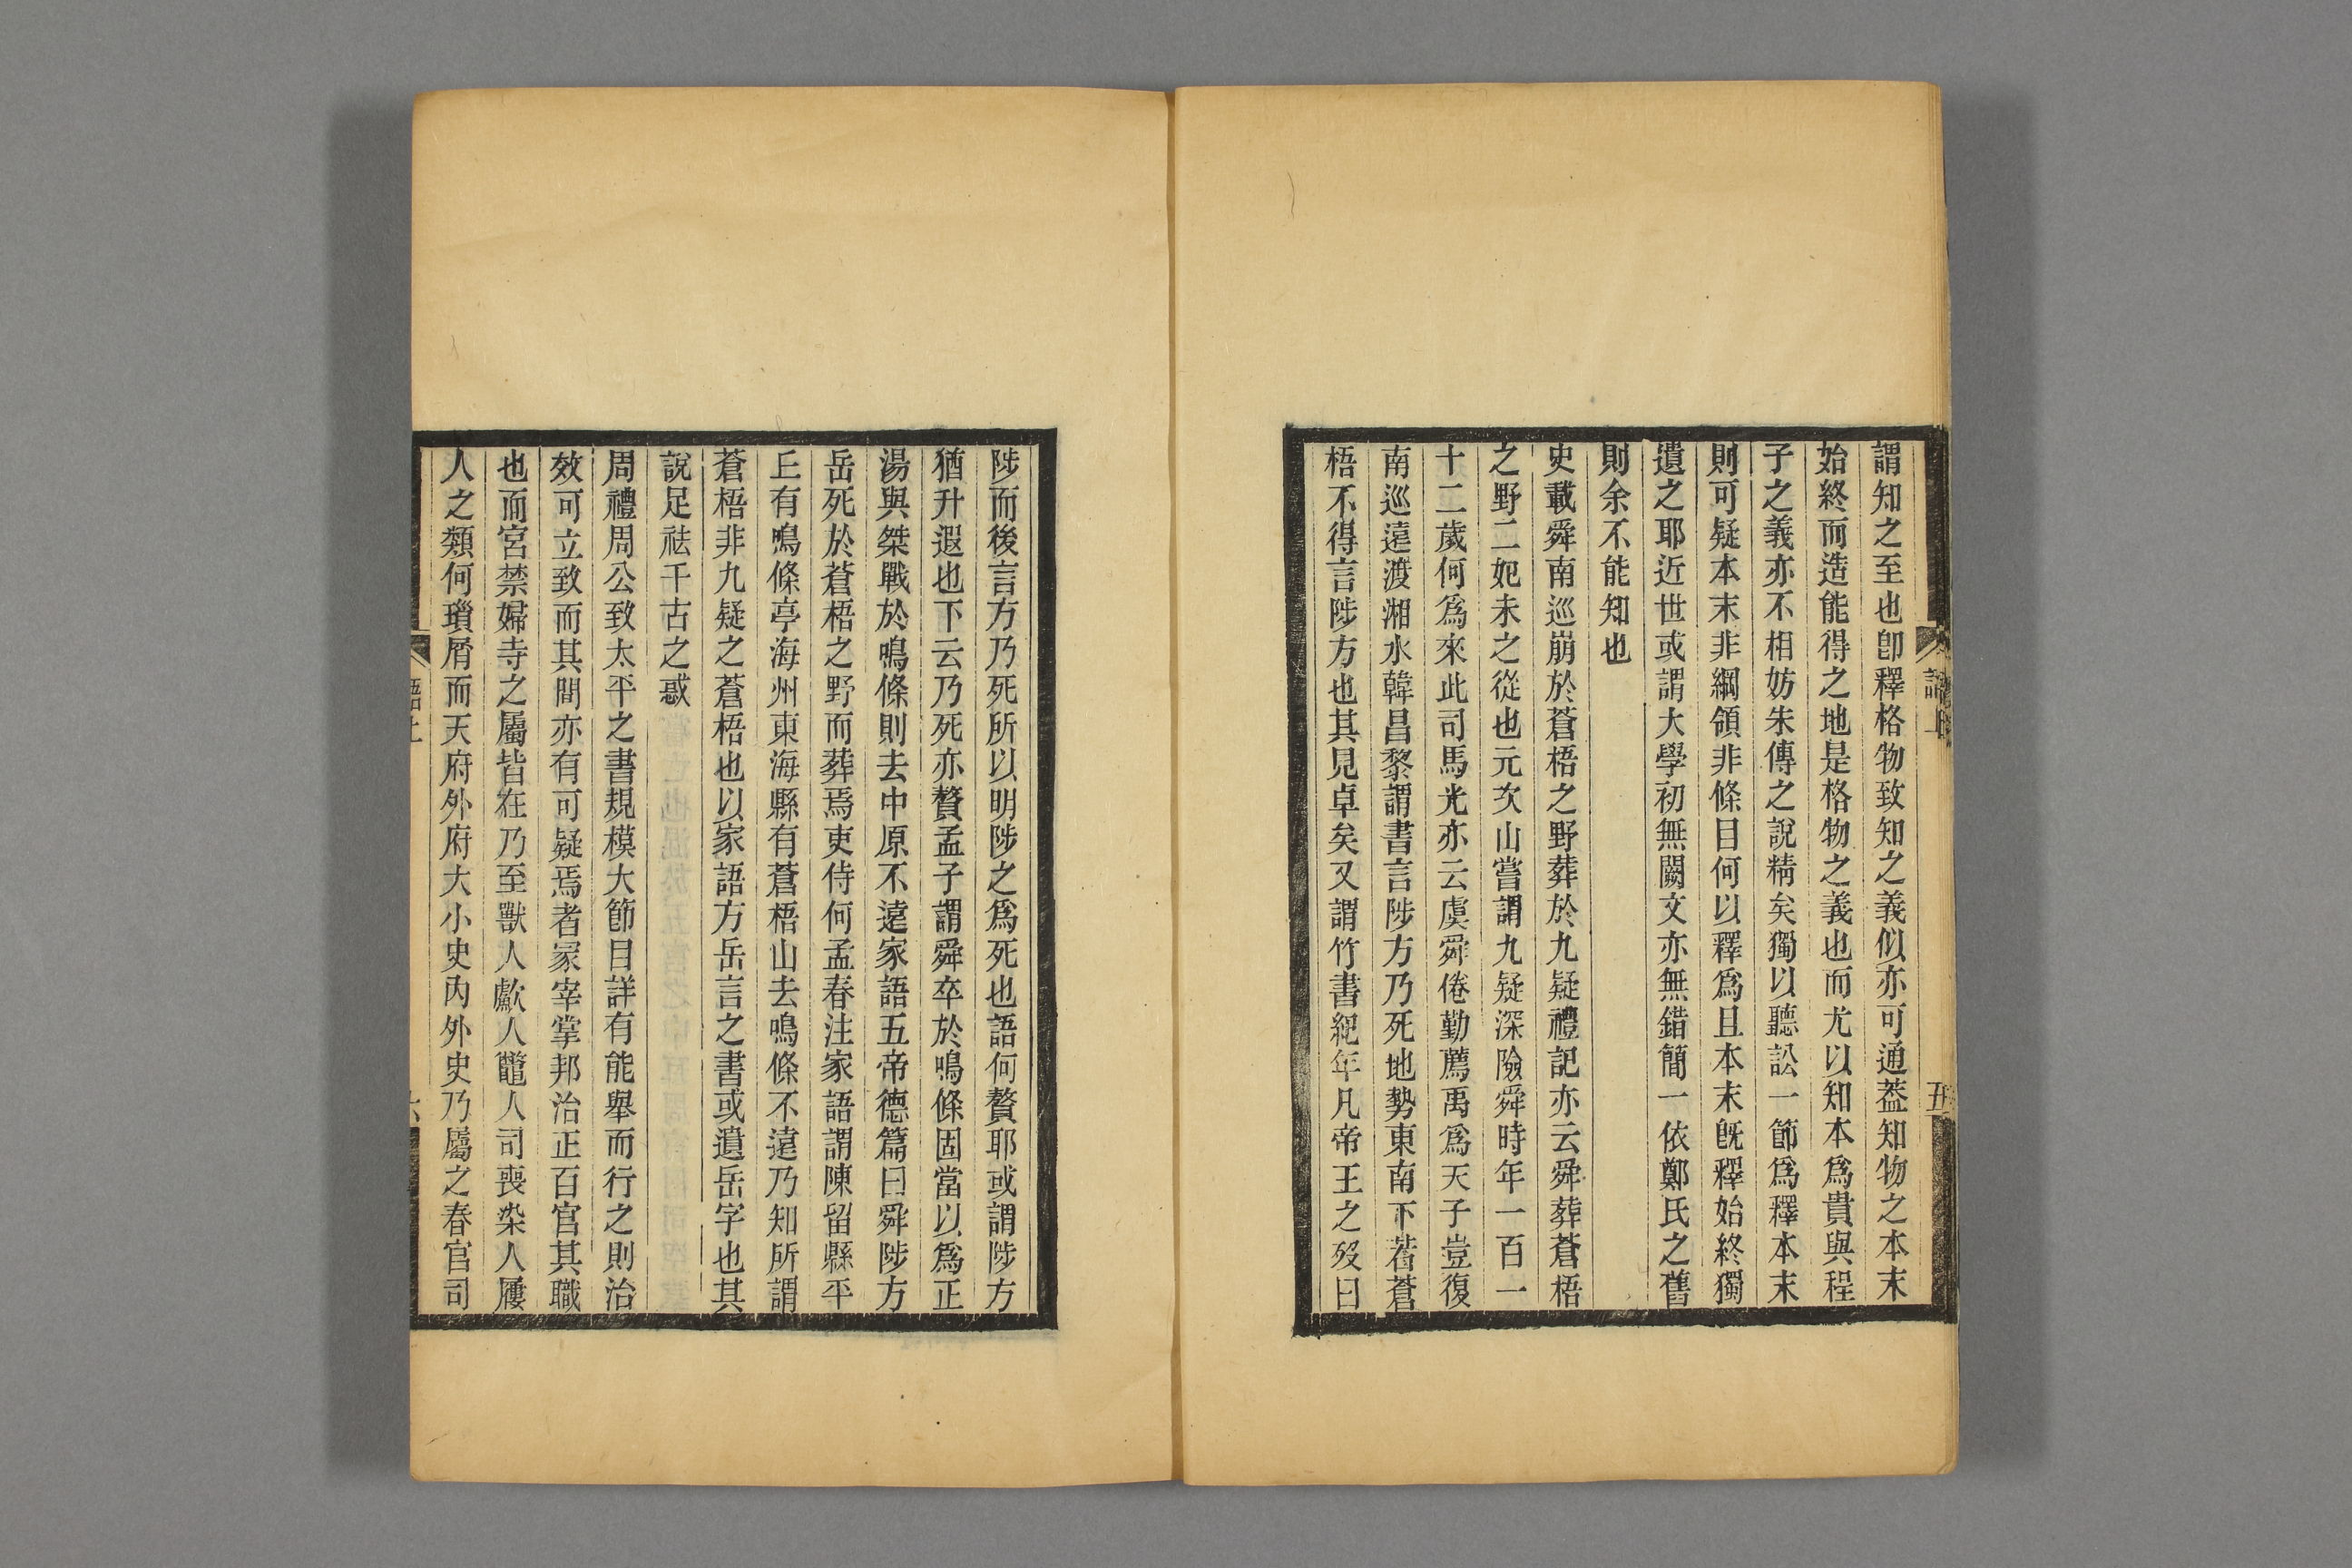 謂知之至也卽釋格物致知之義似亦可通葢知物之本末
始終而造能得之地是格物之義也而尤以知本爲貴與程
子之義亦不相妨朱傳之說精矣獨以聽訟一節爲釋本末
則可疑本末非綱領非條目何以釋爲且本末旣釋始終獨
遺之耶近世或謂大學初無闕文亦無錯簡一依鄭氏之舊
則余不能知也
史載舜南巡崩於蒼梧之野葬於九疑禮記亦云舜葬蒼梧
之野二妃未之從也元次山嘗謂九疑深險舜時年一百一
十二歲何爲來此司馬光亦云虞舜倦勤薦禹爲天子豈復
南巡遠渡湘水韓昌黎謂書言陟方乃死地勢東南下若蒼
梧不得言陟方也其見卓矣又謂竹書紀年凡帝王之歿曰
語上
五
陟而後言方乃死所以明陟之爲死也語何贅耶或謂陟方
猶升遐也下云乃死亦贅孟子謂舜卒於鳴條固當以爲正
湯與桀戰於鳴條則去中原不遠家語五帝德篇曰舜陟方
岳死於蒼梧之野而葬焉吏侍何孟春注家語謂陳留縣平
丘有鳴條亭海州東海縣有蒼梧山去鳴條不遠乃知所謂
蒼梧非九疑之蒼梧也以家語方岳言之書或遺岳字也其
說足祛千古之惑
周禮周公致太平之書規模大節目詳有能舉而行之則治
效可立致而其間亦有可疑焉者冢宰掌邦治正百官其職
也而宮禁婦寺之屬皆在乃至獸人䱷人鼈人司裘染人屨
人之類何瑣屑而天府外府大小史內外史乃屬之春官司
語上
六